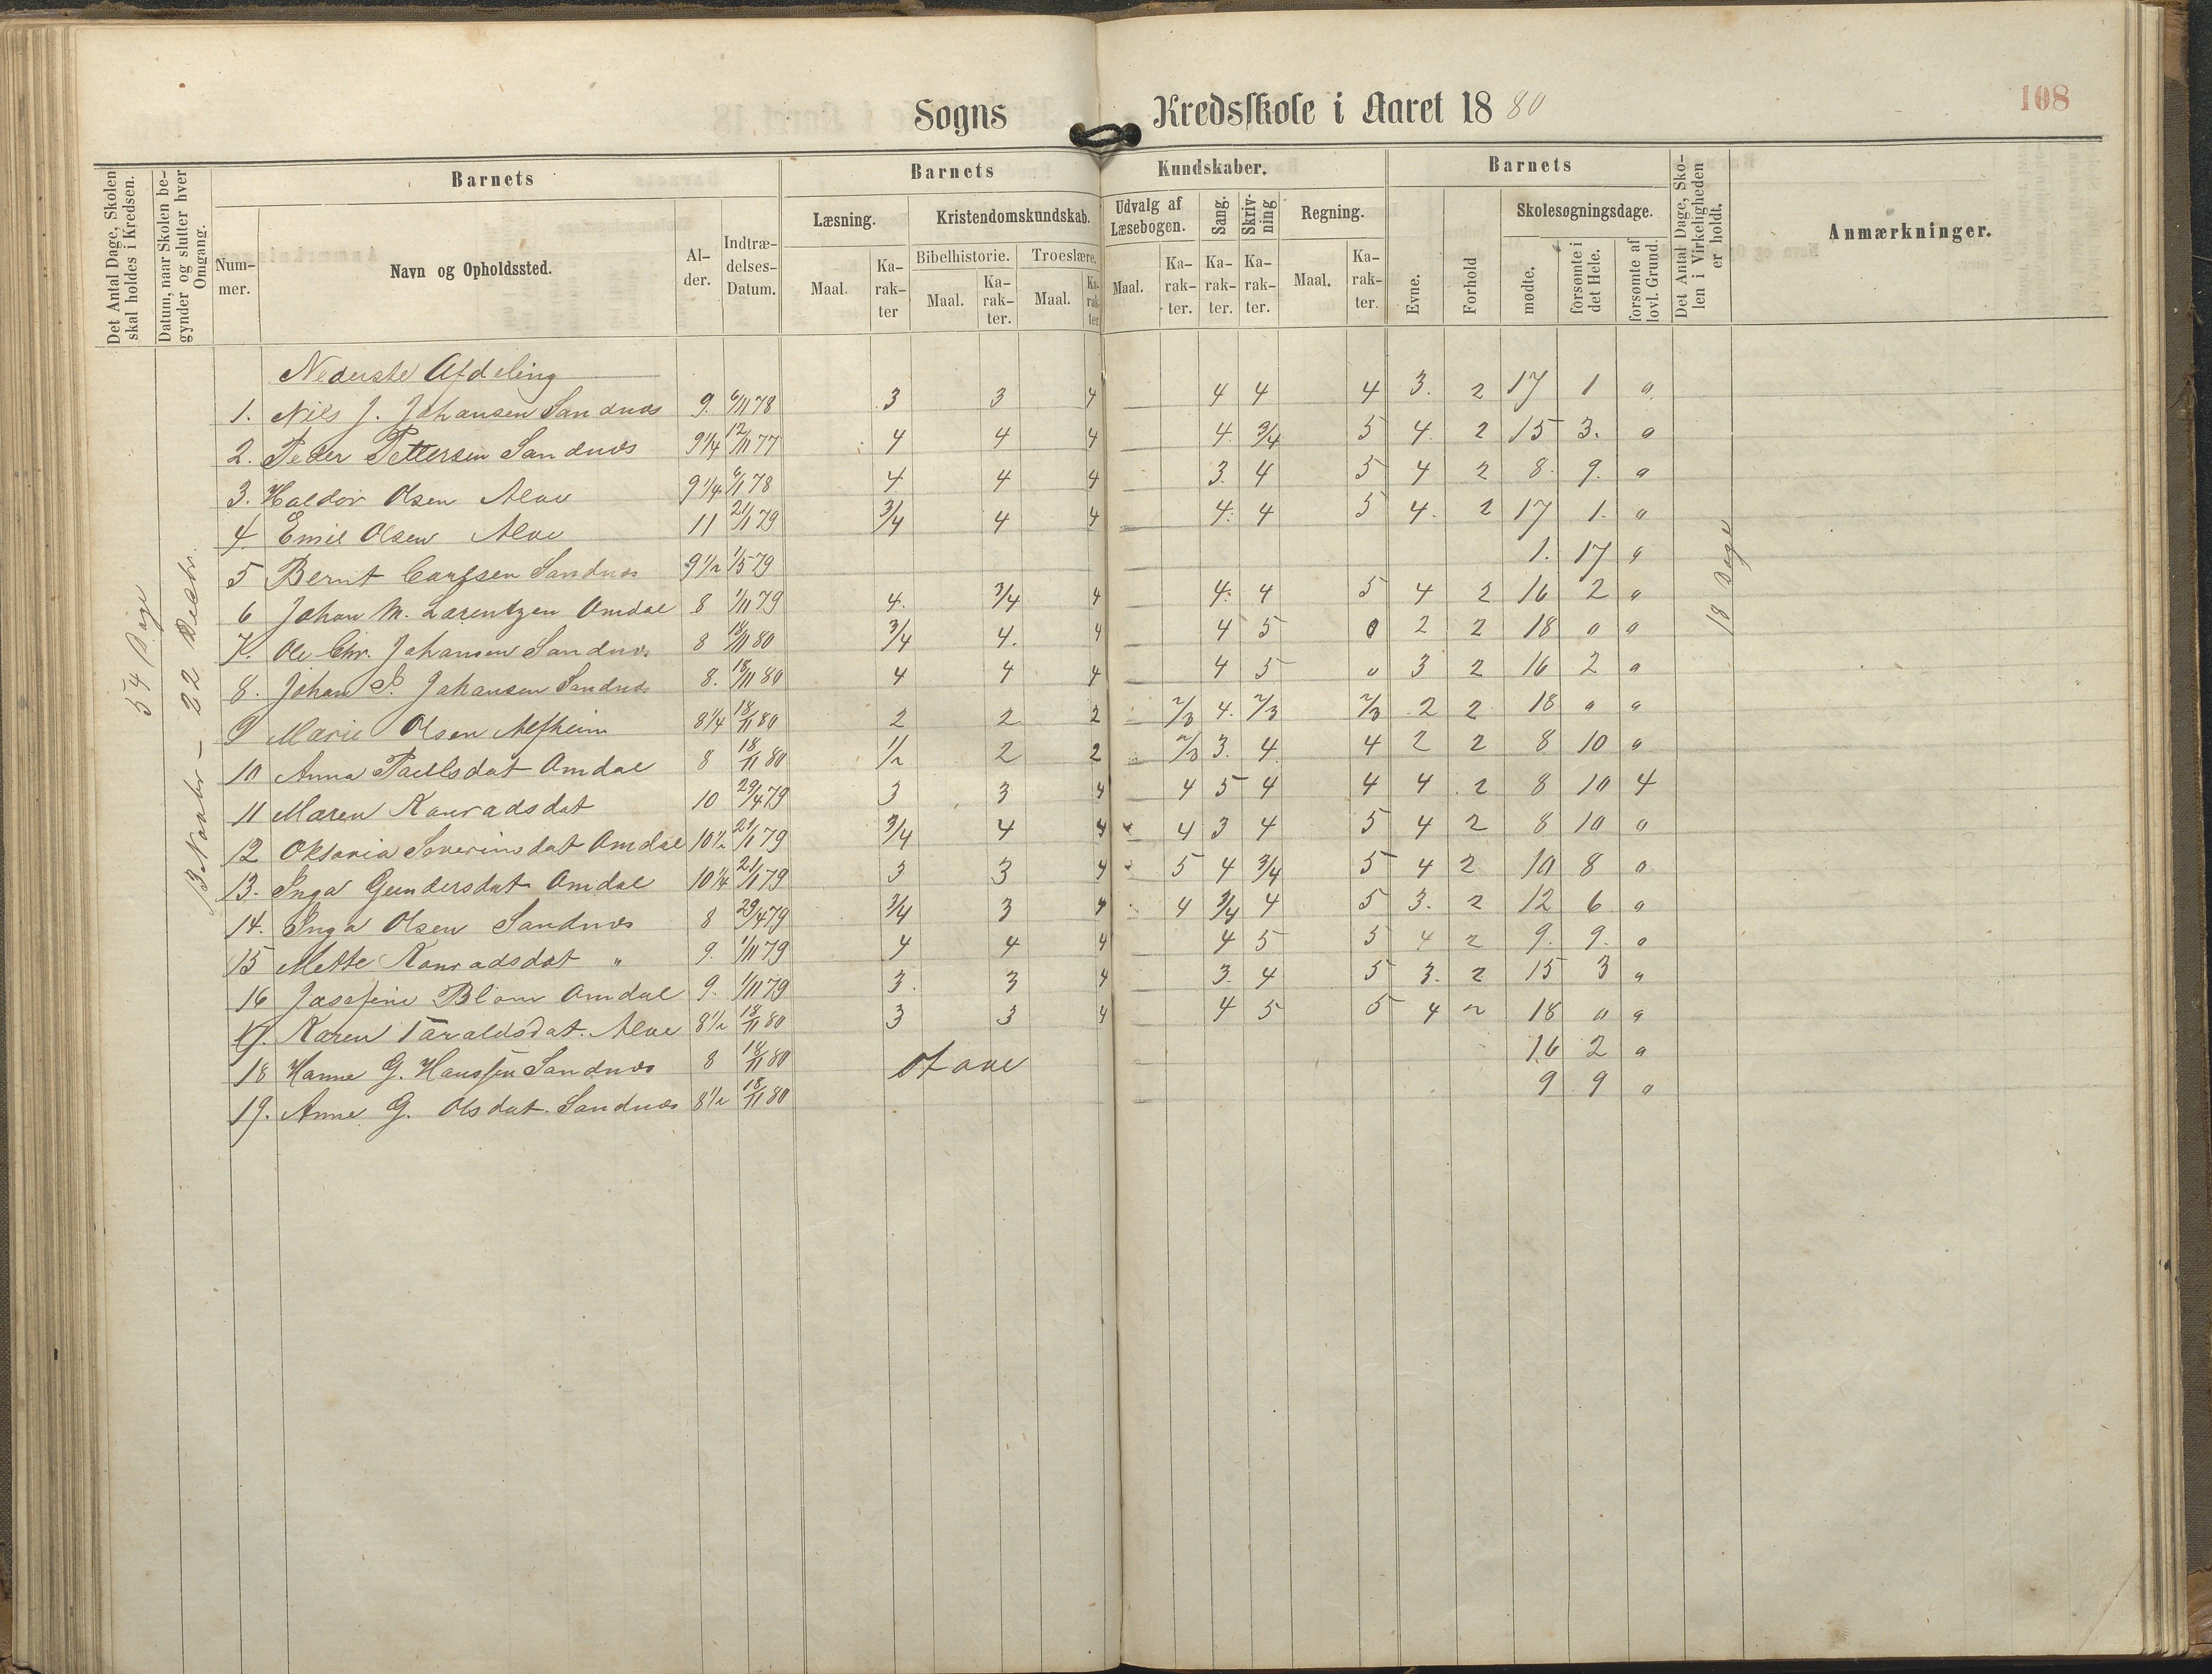 Sogns Kredsskole i Aaret 1880
108
Det Antal Dage, Skolen skal holdes i Kredsen.
Datum, naar Skolen begynder og slutter hver Omgang.
Barnets
Nummer.
Navn og Opholdssted.
Alder.
Indtrædelses-Datum.
Barnets Kundskaber.
Læsning.
Maal.
Karakter
Kristendomskundskab.
Bibelhistorie.
Maal.
Karakter.
Troeslære.
Maal.
Karakter
Udvalg af Læsebogen.
Maal.
Karakter.
Sang.
Karakter.
Skrivning
Karakter.
Regning.
Maal.
Karakter.
Barnets
Evne.
Forhold
Skolesøgningsdage.
mødte.
forsømte i det Hele.
forsømte af lovl. Grund.
Det Antal Dage, Skolen i Virkeligheden er holdt.
Anmærkninger.
54 Dage
22 Decbr.
18 Dage
Nederste Afdeling
1. Nils J. Johansen Sandnæs 9. 6/11 78 3 3 4 4 4 4 3. 2 17 1 "
2. Peder Pettersen Sandnæs 9 1/4 12/11 77 4 4 4 4. 3/4 5 4. 2 15 3. "
3. Haldor Olsen Alve 9 1/4 78 4 4 4 3. 4 5 4 2 8. 9. "
4. Emil Olsen Alve 11 21/1 79 3/4 4 4 4. 4 5 4. 2 17 1. "
5 Bernt Carlsen Sandnæs 9 1/2 1/5 79 1. 17 "
6 Johan M. Larentzen Omdal 8 1/11 79 4. 3/4 4 4. 4 5 4 2 16 2 "
7. Ole Chr. Johansen Sandnæs 8 18/11 80 3/4 4. 4 4 5 0 2 2 18 " "
8. Johan Johansen Sandnæs 8. 18/11 80 4 4 4 4 5 " 3 2 16 2 "
9 Marie Olsen Alfheim 8 1/4 18/11 80 2 2 2 2/3 4. 2/3 2/3 2 2 18 " "
10 Anna Paulsdat Omdal 8 18/11 80 1/2 2 2 2/3 3. 4 4 2 2 8 10 "
11 Maren Konradsdat 10 29/4 79 3 3 4 4 5 4 4 4 2 8 10 4
12 Oktavia Severinsdat Omdal 10 1/2 21/1 79 3/4 4 4 4 3 4 5 4 2 8 10 "
13. Inga Gundersdat Omdal 10 1/4 21/1 79 3 3 4 5 4 3/4 5 4 2 10 8 "
14. Inga Olsen Sandnæs 8 29/4 79 3/4 3 4 4 3/4 4 5 3. 2 12 6 "
15 Mette Konradsdat " 9. 1/11 79 4 4 4 4 5 5 4 2 9. 9. "
16 Josefine Blom Omdal 9. 1/11 79 3. 3 4 3. 4 5 3. 2 15 3 "
17. Karen Taraldsdat. Alve 8 1/2 18/11 80 3 3 4 4 5 5 4 2 18 " "
18 Hanne G. Hanssen Sandnæs 8 18/11 80 stave 16 2 "
19. Anne G. Olsdat. Sandnæs 8 1/2 18/11 80 9 9 "